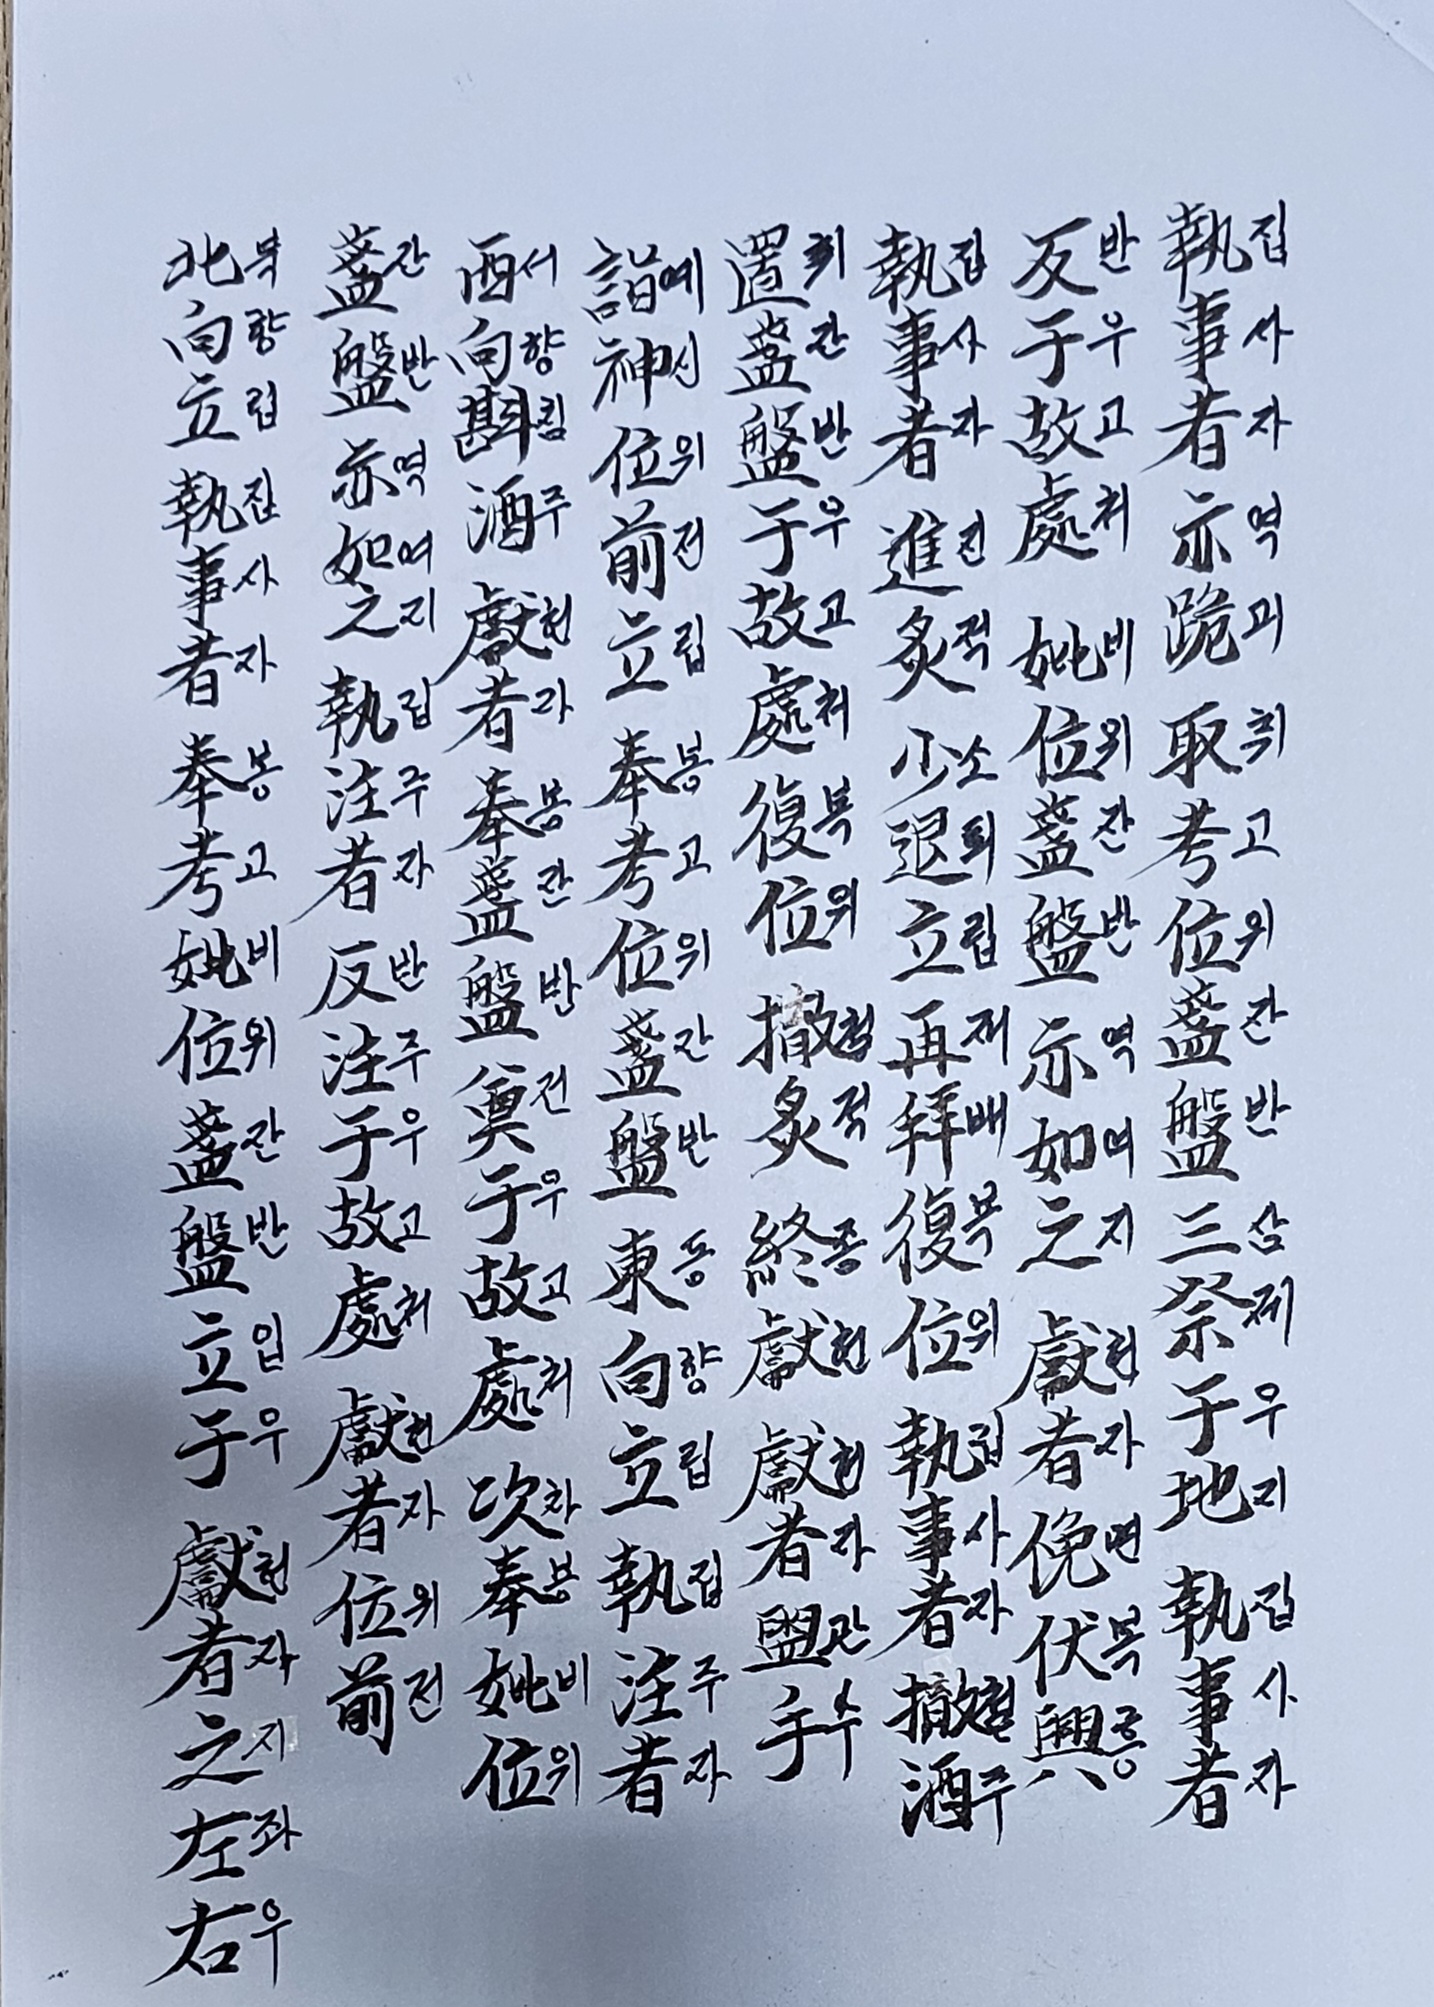 執事者亦跪 取考位盞盤三祭于地 執事者
집사자역괴 취고위잔반삼제우지 집사자
反于故處 妣位盞盤亦如之 獻者俛伏興
반우고처 비위잔반역여지 헌자면복흥
執事者 進炙 少退立再拜復位 執事者撤酒
집사자 진적 소퇴립재배복위 집사자철주
置盞盤于故處復位 撤炙 終獻 獻者盥手
취잔반우고처복위 철적 종헌 헌자관수
詣神位前立 奉考位盞盤 東向立 執注者
예신위전립 봉고위잔반 동향립 집주자
西向斟酒 獻者 奉盞盤奠于故處 次奉妣位
서향짐주 헌자 봉잔반전우고처 차봉비위
盞盤亦如之 執注者 反注于故處 獻者位前
잔반역여지 집주자 반주우고처 헌자위전
北向立 執事者 奉考妣位盞盤立于 獻者之左右
북향립 집사자 봉고비위잔반입우 헌자지좌우